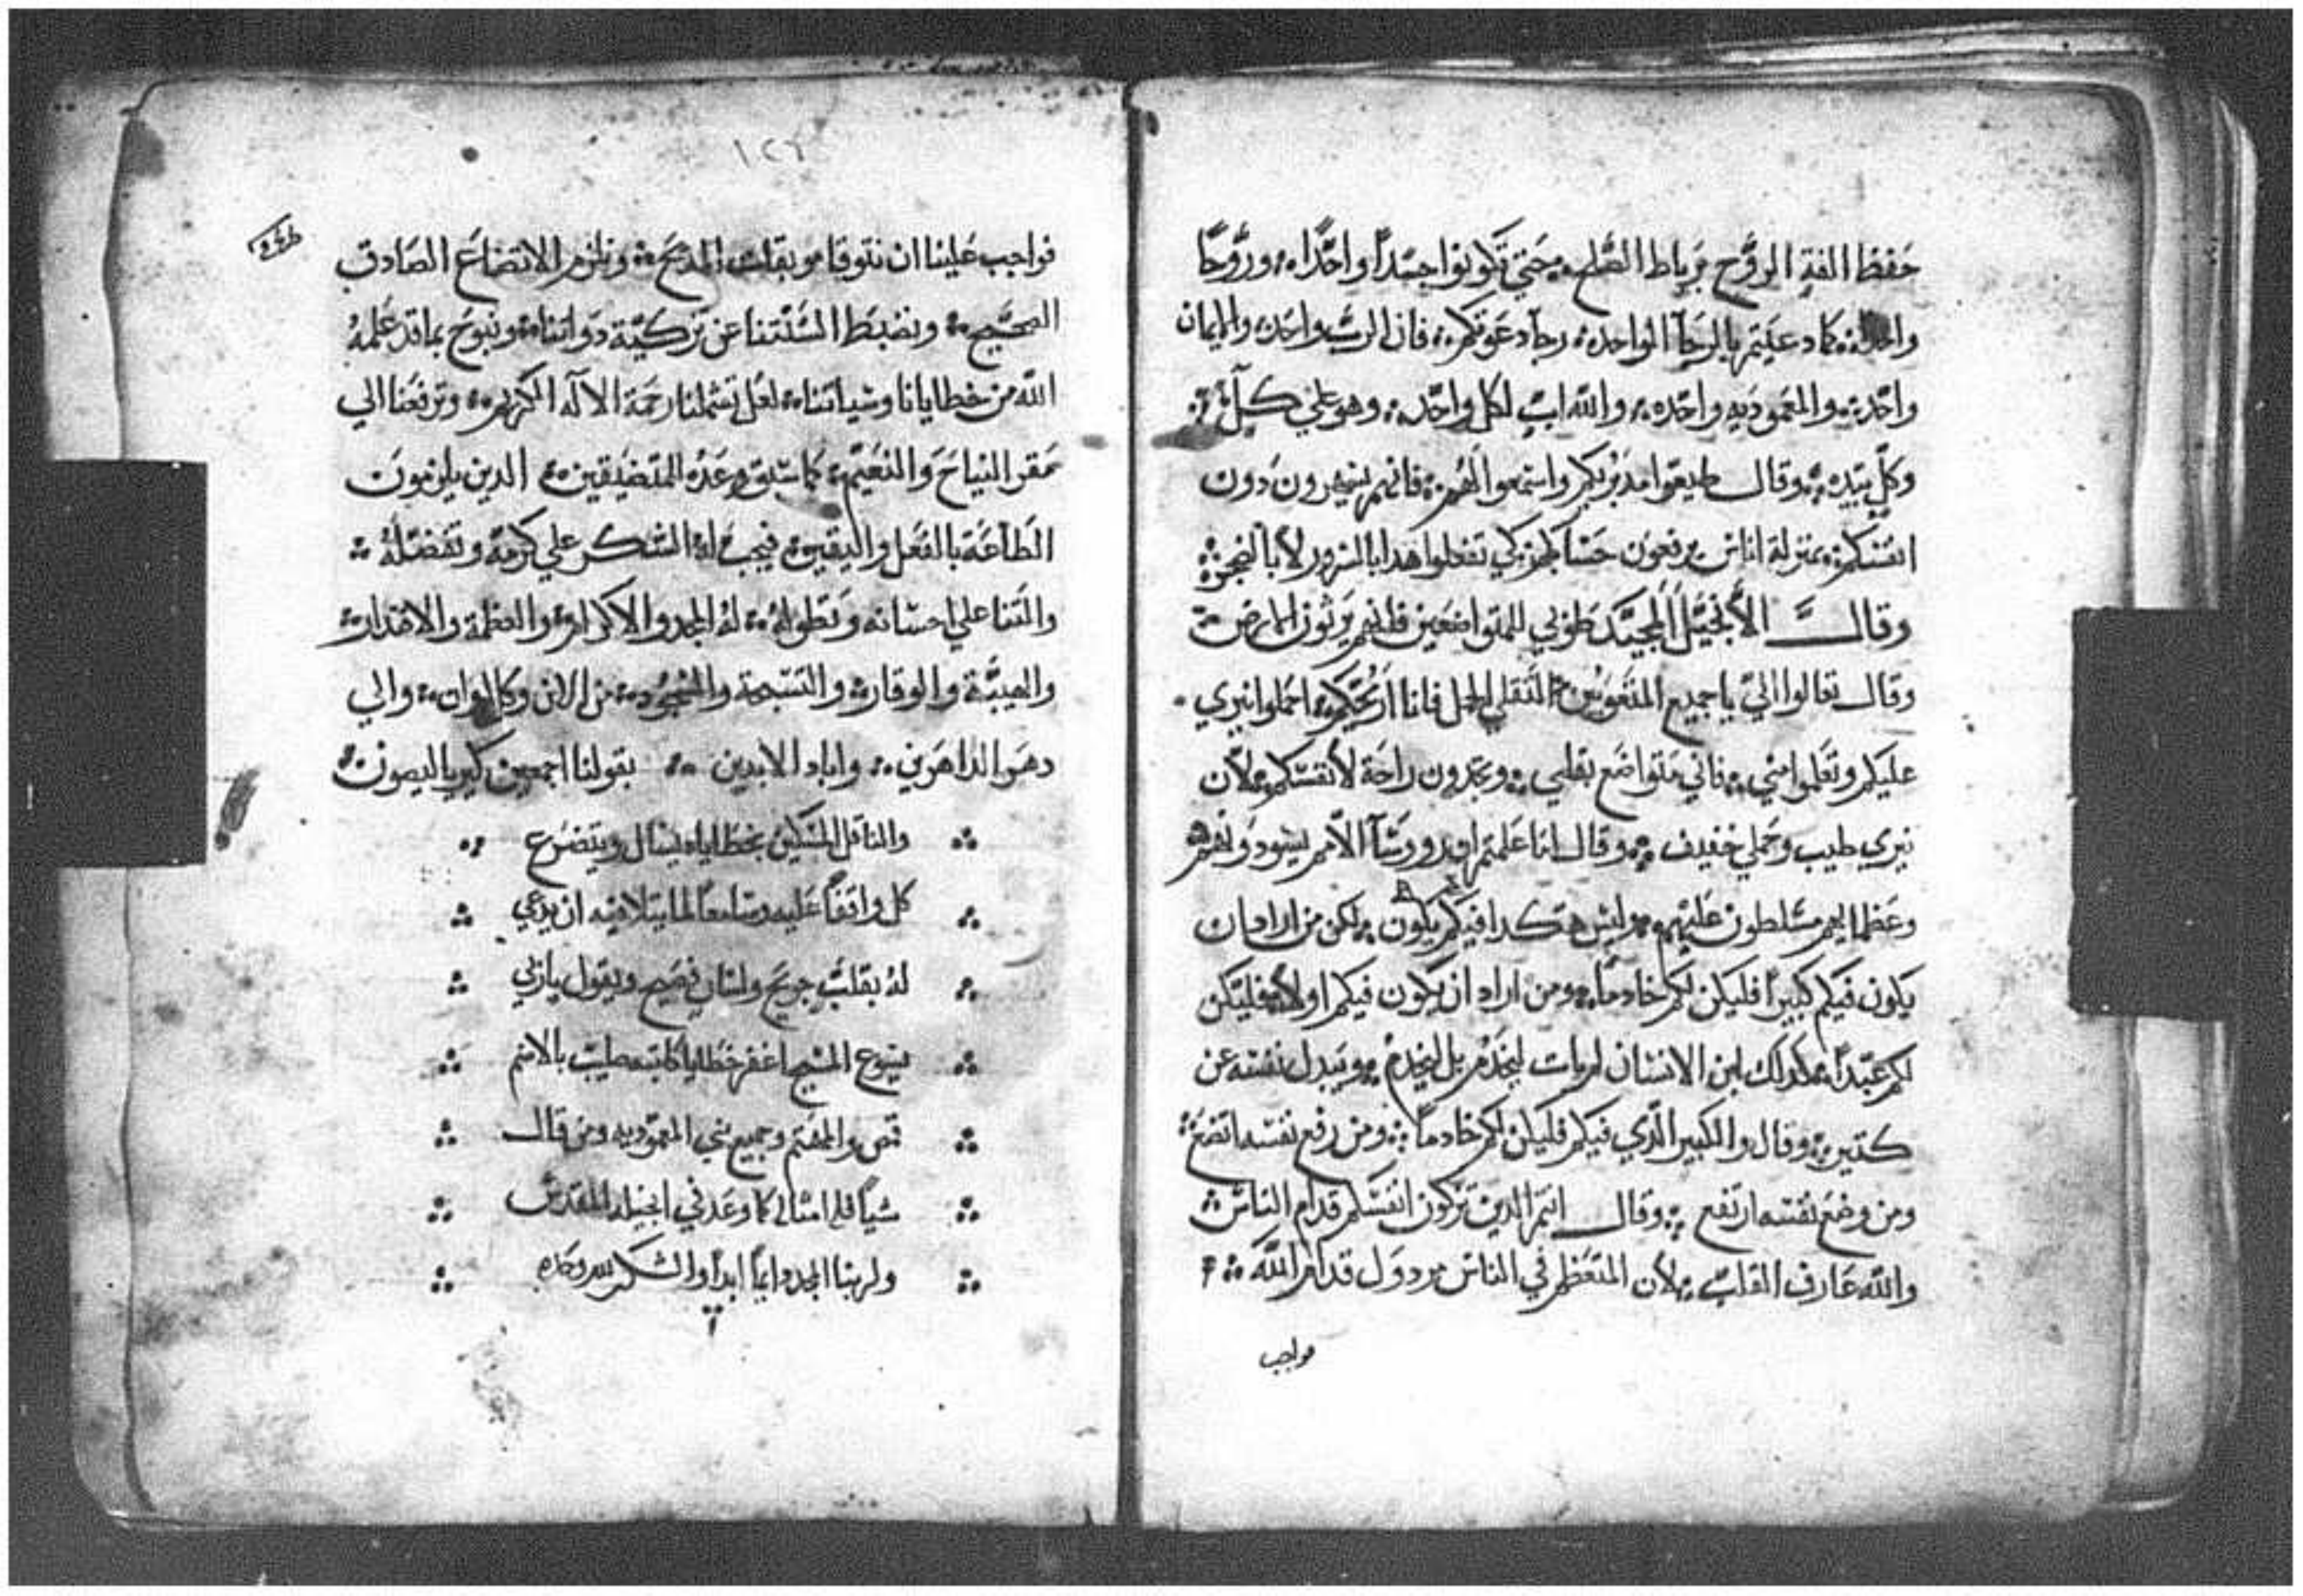 حفظ الفة الروح برباط الصلح حتي تكونوا جسداً واحداً وروحاً
كما دعيتم بالرجآ الواحده رجآ دعوتكم فان الرب واحد والايمان
واحد والمعموديه واحده والله اب لكل واحد وهو علي كل
وكل بيده وقال طيعوا مدبريكم واستمعوا لهم فانهم يسهرون دون
انفسكم بمنزلة اناس يرفعون حسابكم كي تفعلوا هدا بالسرور لا بالضجر
وقال الأنجيل المجيد طوبي للمتواضعين فانهم يرثون الارض
وقال تعالوا اليّ يا جميع المتعوبين التقلي الحمل فانا اريحكم احملوا نيري
عليكم وتعلموا مني فاني متواضع بقلبي وتجدون راحة لأنفسكم لأن
نيري طيب وحملي خفيف وقال اما علمتم ان روسآ الأمم يسودونهم
وعظمايهم مسلطون عليهم وليس هكدا فيكم يكون لكن من اراد ان
يكون فيكم كبيراً فليكن لكم خادماً ومن اراد ان يكون فيكم اولاً فليكن
لكم عبداً كدلك ابن الانسان لم يات ليخدم بل ليخدم ويبدل نفسه عن
كتيرين وقال والكبير الدي فيكم فليكن لكم خادماً ومن رفع نفسه اتضع
ومن وضع نفسه ارتفع وقال انتم الدين تزكون انفسكم قدام الناس
والله عارف القلب لأن المتعظم في الناس مردول قدام الله
فواجب
١٢٦
فواجب علينا ان نتوقا موبقات المديح ونلزم الاتضاع الصادق
الصحيح ونضبط السنتنا عن تزكية دواتنا ونبوح بما قد علمه
الله من خطايانا وسياتنا لعل تشملنا رحمة الآله الكريم وترفعنا الي
مقر النياح والنعيم كما سبق وعده المتضيقين الدين يلزمون
الطاعة بالفعل واليقين فيجب له الشكر علي كرمه وتفضله
والتنا علي احسانه وتطوله له المجد والاكرام والعظمة والاقتدار
والهيبة والوقار والتسبحة والسجود من الان وكل اوان والي
دهر الداهرين واباد الابدين بقولنا اجمعين كيرياليصون
والناقل المسكين بخطاياه يسال ويتضرع
كل واقفاً عليه وسامعاً لما يتلا فيه ان يدعي
له بقلب جريح ولسان فصيح ويقول يا ربي
يسوع المسيح اغفر خطايا كاتبه صليب بالاسم
قس والمهتم وجميع بني المعموديه ومن قال
شياً فله امثاله كما وعد في انجيله المقدس
ولربنا المجد دايماً ابداً والشكر لله وحده